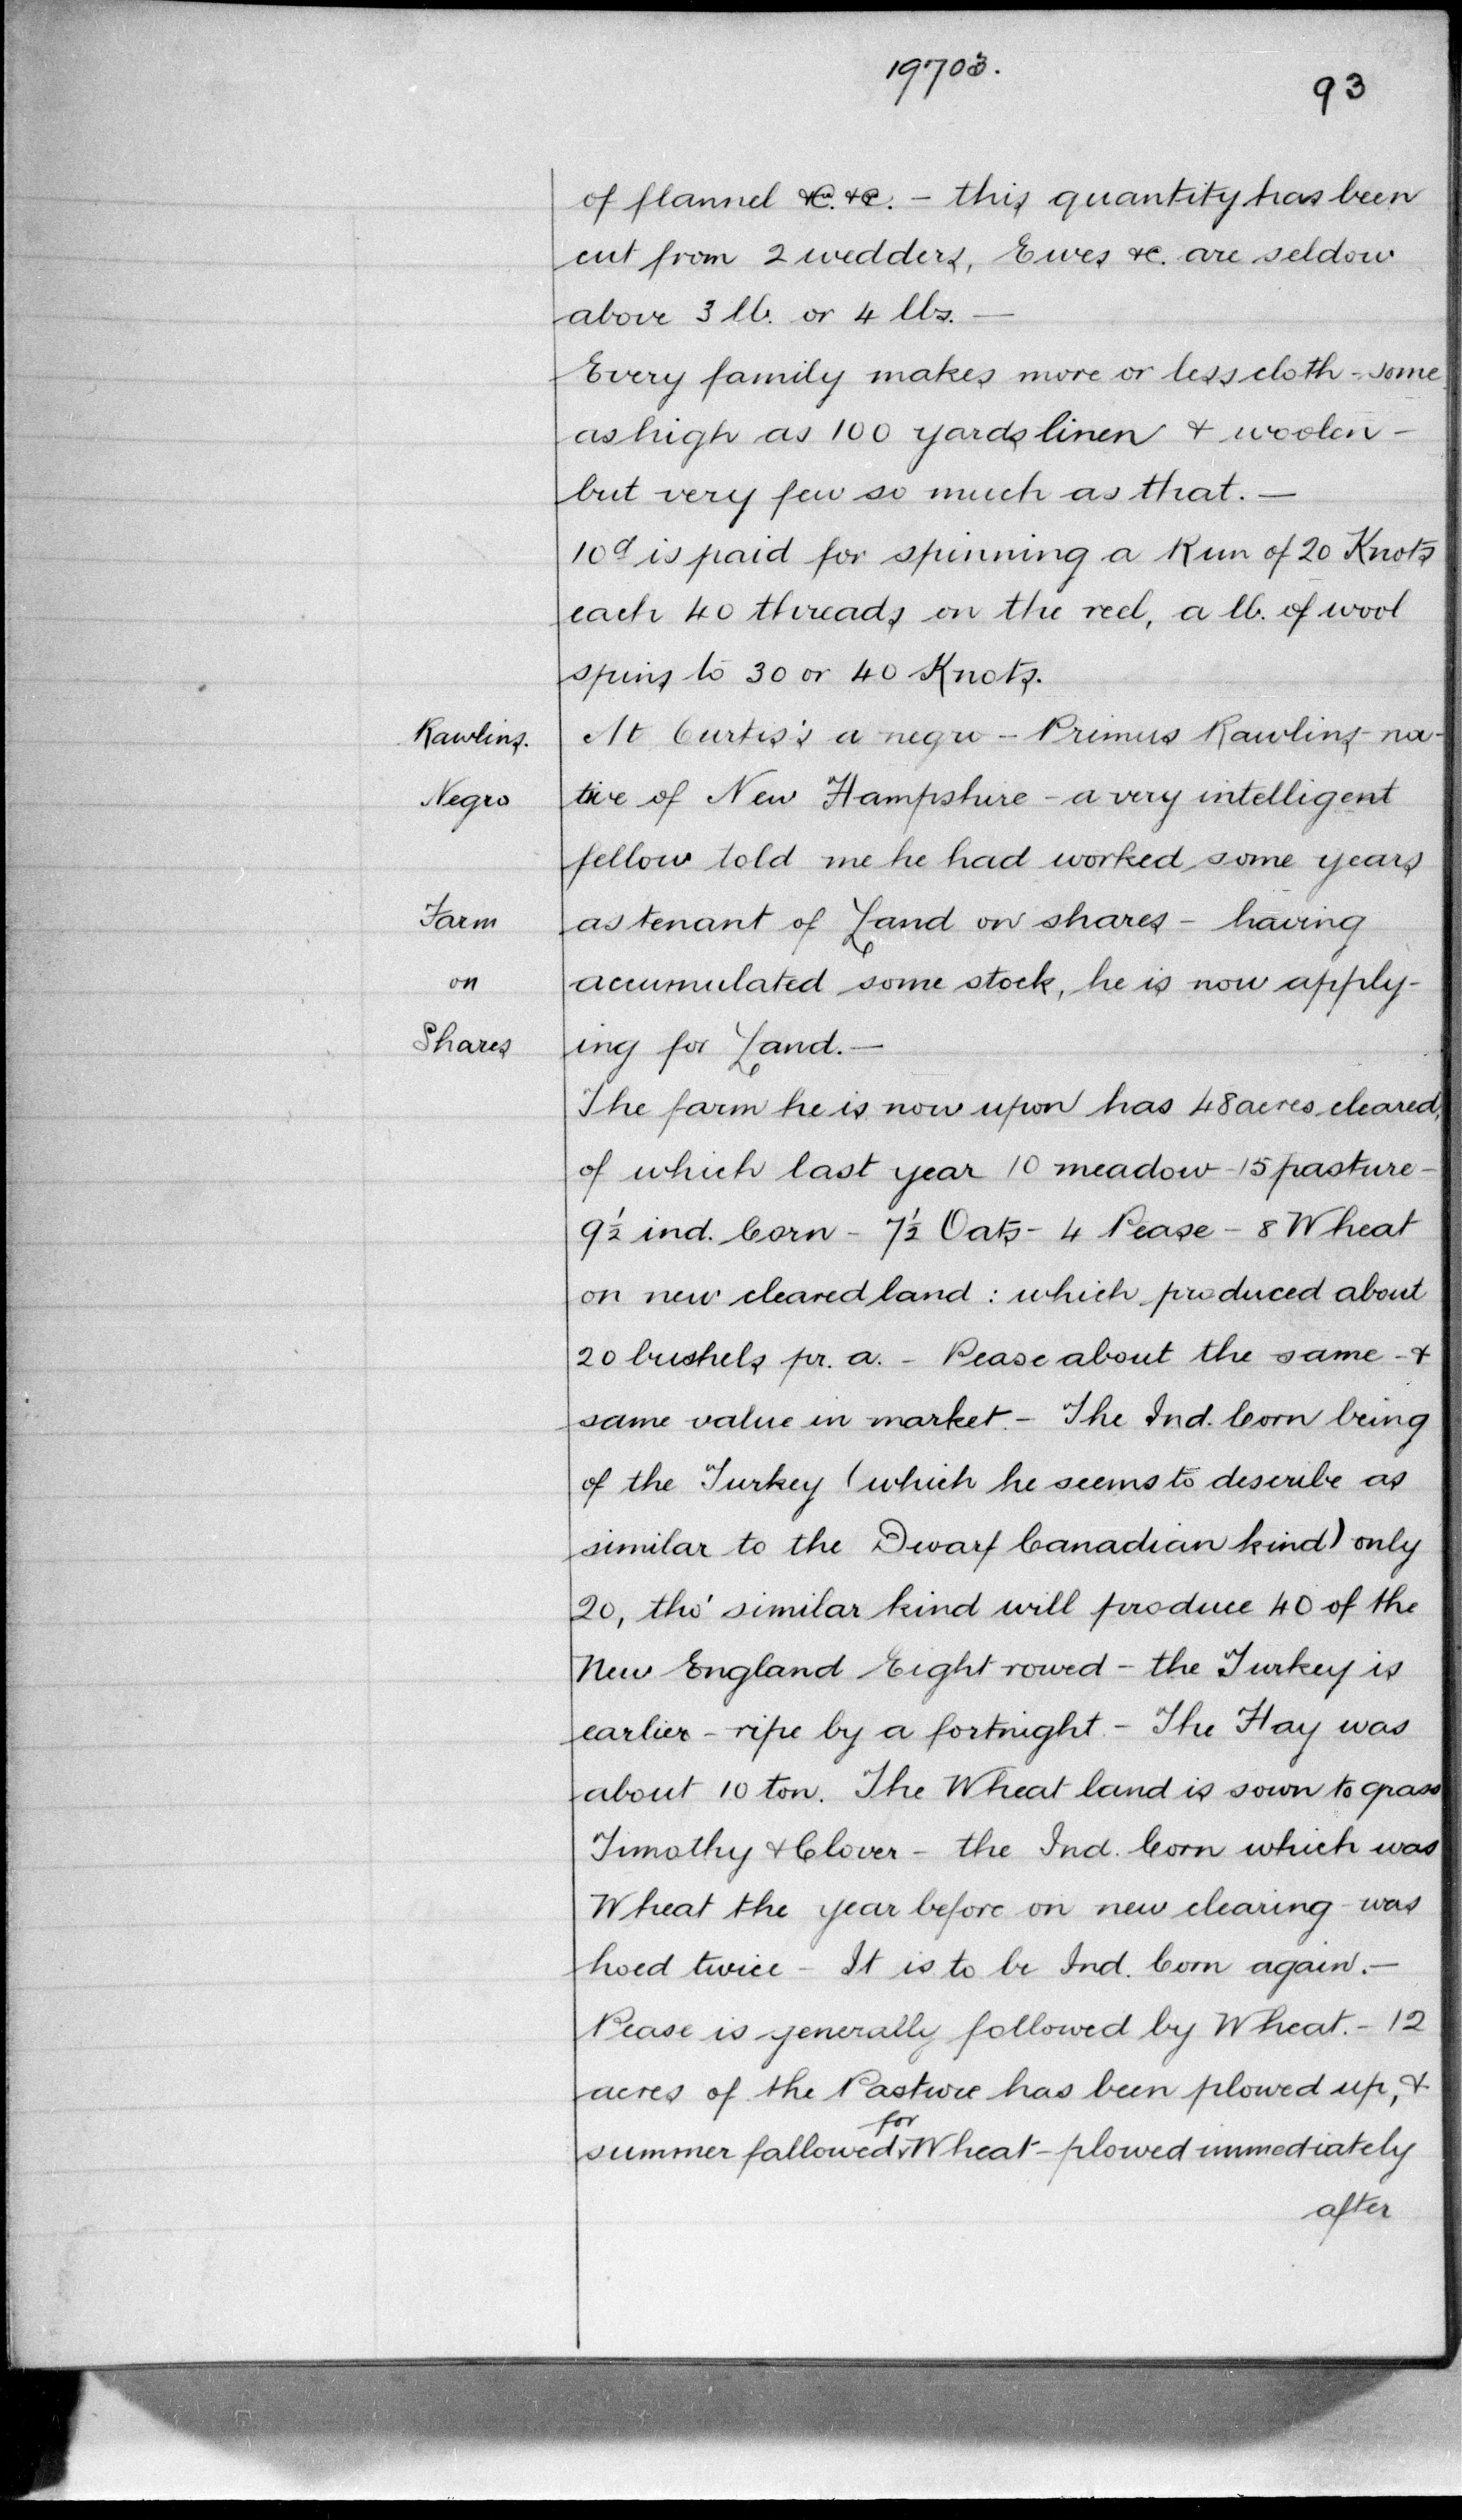 19703.
93
of flannel &c. &c. – this quantity has been
cut from 2 wedders, Ewes &c. are seldow
above 3 lb. or 4 lbs. —
Every family makes more or less cloth – some
as high as 100 yards linen & woolen –
but very few so much as that. —
10d is paid for spinning a Run of 20 Knots
each 40 threads on the reel, a lb. of wool
spins to 30 or 40 Knots.
Rawlins. At Curtis's a negro – Primus Rawlins – na-
Negro tive of New Hampshire – a very intelligent
fellow told me he had worked some years
Farm as tenant of Land on shares – having
on accumulated some stock, he is now apply-
Shares ing for Land. —
The farm he is now upon has 48 acres cleared,
of which last year 10 meadow – 15 pasture –
9½ ind. Corn – 7½ Oats – 4 Pease – 8 Wheat
on new cleared land : which produced about
20 bushels pr. a. – Pease about the same – &
same value in market. – The Ind. Corn being
of the Turkey (which he seems to describe as
similar to the Dwarf Canadian kind) only
20, tho' similar kind will produce 40 of the
New England Eight rowed – the Turkey is
earlier – ripe by a fortnight. – The Hay was
about 10 ton. The Wheat land is sown to grass
Timothy & Clover – the Ind. Corn which was
Wheat the year before on new clearing – was
hoed twice – It is to be Ind. Corn again. —
Pease is generally followed by Wheat. – 12
acres of the Pasture has been plowed up, &
summer fallowed for Wheat – plowed immediately
after